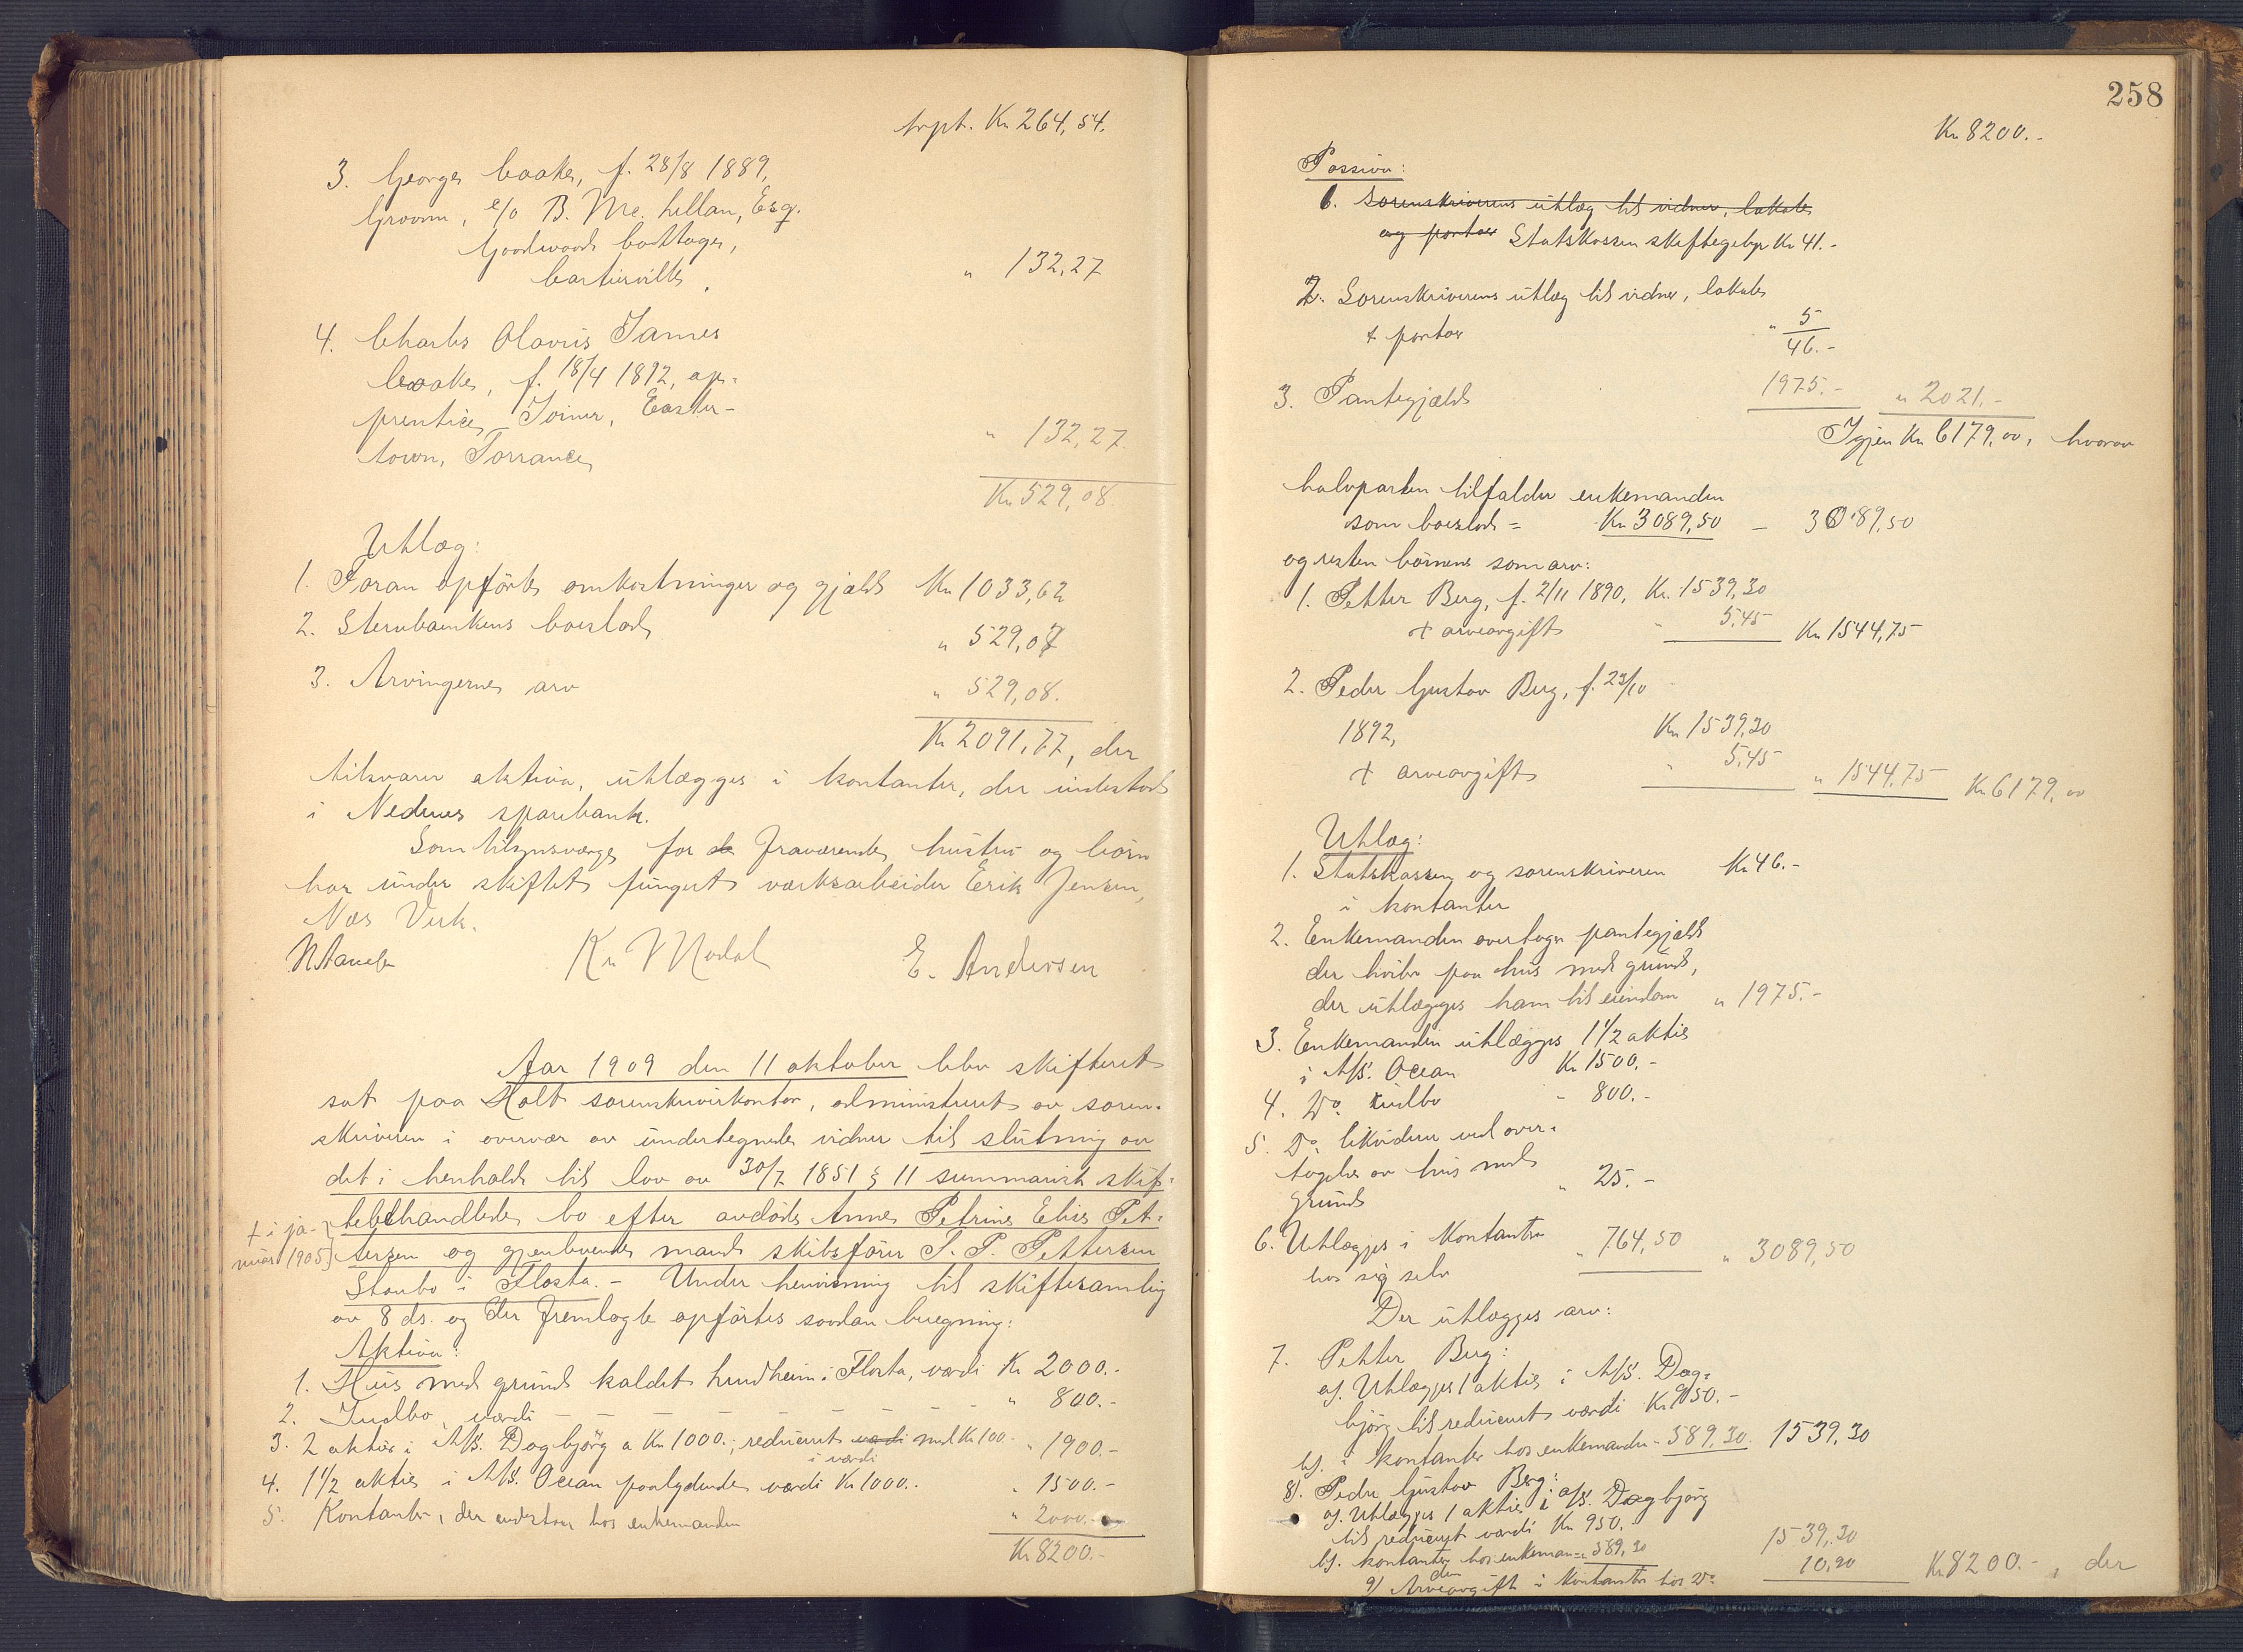 trpt. Kr. 264,54.
3. Georges Cooke, f. 28/8 1889,
Groom, c/o B. Mc. Lellan, Esq.
Goodwood Cottage,
Cartierville. " 132,27
4. Charles Olavus James
Cooke, f. 18/4 1892, ap-
prentice Joiner, Easter-
town, Torrance " 132,27
Kr. 529,08.
Utlæg:
1. Foran opførte omkostninger og gjæld Kr 1033,62
2. Stervbaankens boeslod " 529,07
3. Arvingernes arv " 529,08.
Kr 2091,77, der
tilsvarer aktiva, utlægges i kontanter, der indestod
i Nedenes sparebank.
Som tilsynsværge for de fraværende hustru og børn
har under skiftet fungert verksarbeider Erik Jensen,
Næs Verk.
Kr. Modal E. Andersen
Aar 1909 den 11 oktober blev skifteret
sat paa Holt sorenskriverkontor, administreret av soren-
skriveren i overvær av undertegnede vidner til slutning av
det i henhold til lov av 30/7 1851 § 11 summarisk skif-
tebehandlede bo efter avdøde Anne Petrine Elise Pet-
† i ja-
nuar 1905
tersen og gjenlevende mand skibsfører T. P. Pettersen
Staubo i Flosta. - Under henvisning til skiftesamling
av 8 ds. og der fremlagte opførtes saadan beregning:
Aktiva:
1. Hus med grund kaldet Lundheim i Flosta, værdi Kr 2000.-
2. Indbo, værdi - - - - - - - " 800.-
3. 2 aktier i A/S. Dagbjørg a Kr 1000.-, reduceret værdi med Kr 100.- " 1900.-
i værdi
4. 1 1/2 aktie i A/S. Ocean paalydende værdi Kr 1000.- " 1500.-
5. Kontanter, der indestaar hos enkemanden " 2000.-
Kr. 8200.-
258
Kr 8200.-
Passiva:
6. Sorenskriverens utlæg til vidner, lokale
og portoer Statskassen skiftegebyr Kr 41.-
2. Sorenskriverens utlæg til vidner, lokale
+ portoer " 5
46.-
3. Pantegjæld 1975.- " 2021.-
Igjen Kr 6179,00, hvorav
halvparten tilfalder enkemanden
som boeslod = Kr 3089,50 - 3089,50
og resten børnene som arv:
1. Petter Berg, f. 2/11 1890, Kr. 1539,30
+ arveavgift " 5,45 Kr 1544,75
2. Peder Gustav Berg, f. 23/10
1892, Kr 1539,30
+ arveavgift " 5,45 " 1544,75 Kr 6179,00
Utlæg:
1. Statskassen og sorenskriveren Kr 46.-
i kontanter
2. Enkemanden overtager pantegjæld
der hviler paa hus med grund,
der utlægges ham til eiendom " 1975.-
3. Enkemanden utlægges 1 1/2 aktie
i A/S. Ocean Kr 1500.-
4. Do. indbo - 800.-
5. Do. likviderer ved over-
tagelse av hus med
grund " 25.-
6. Utlægges i Kontanter
hos sig selv " 764,50 " 3089,50
Der utlægges arv:
7. Petter Berg:
a). Utlægges 1 aktie i A/S. Dag-
bjørg til reduceret værdi Kr 950.-
b). i kontanter hos enkemanden - 589,30. 1539,30
8). Peder Gustav Berg:
a). Utlægges 1 aktie i A/S. Dagbjørg
til reduceret værdi Kr 950.
b). kontanter hos enkeman- " 589,30 1539,30
den
9) Arveavgift i Kontanter hos Do. 10,90 Kr 8200.-, der